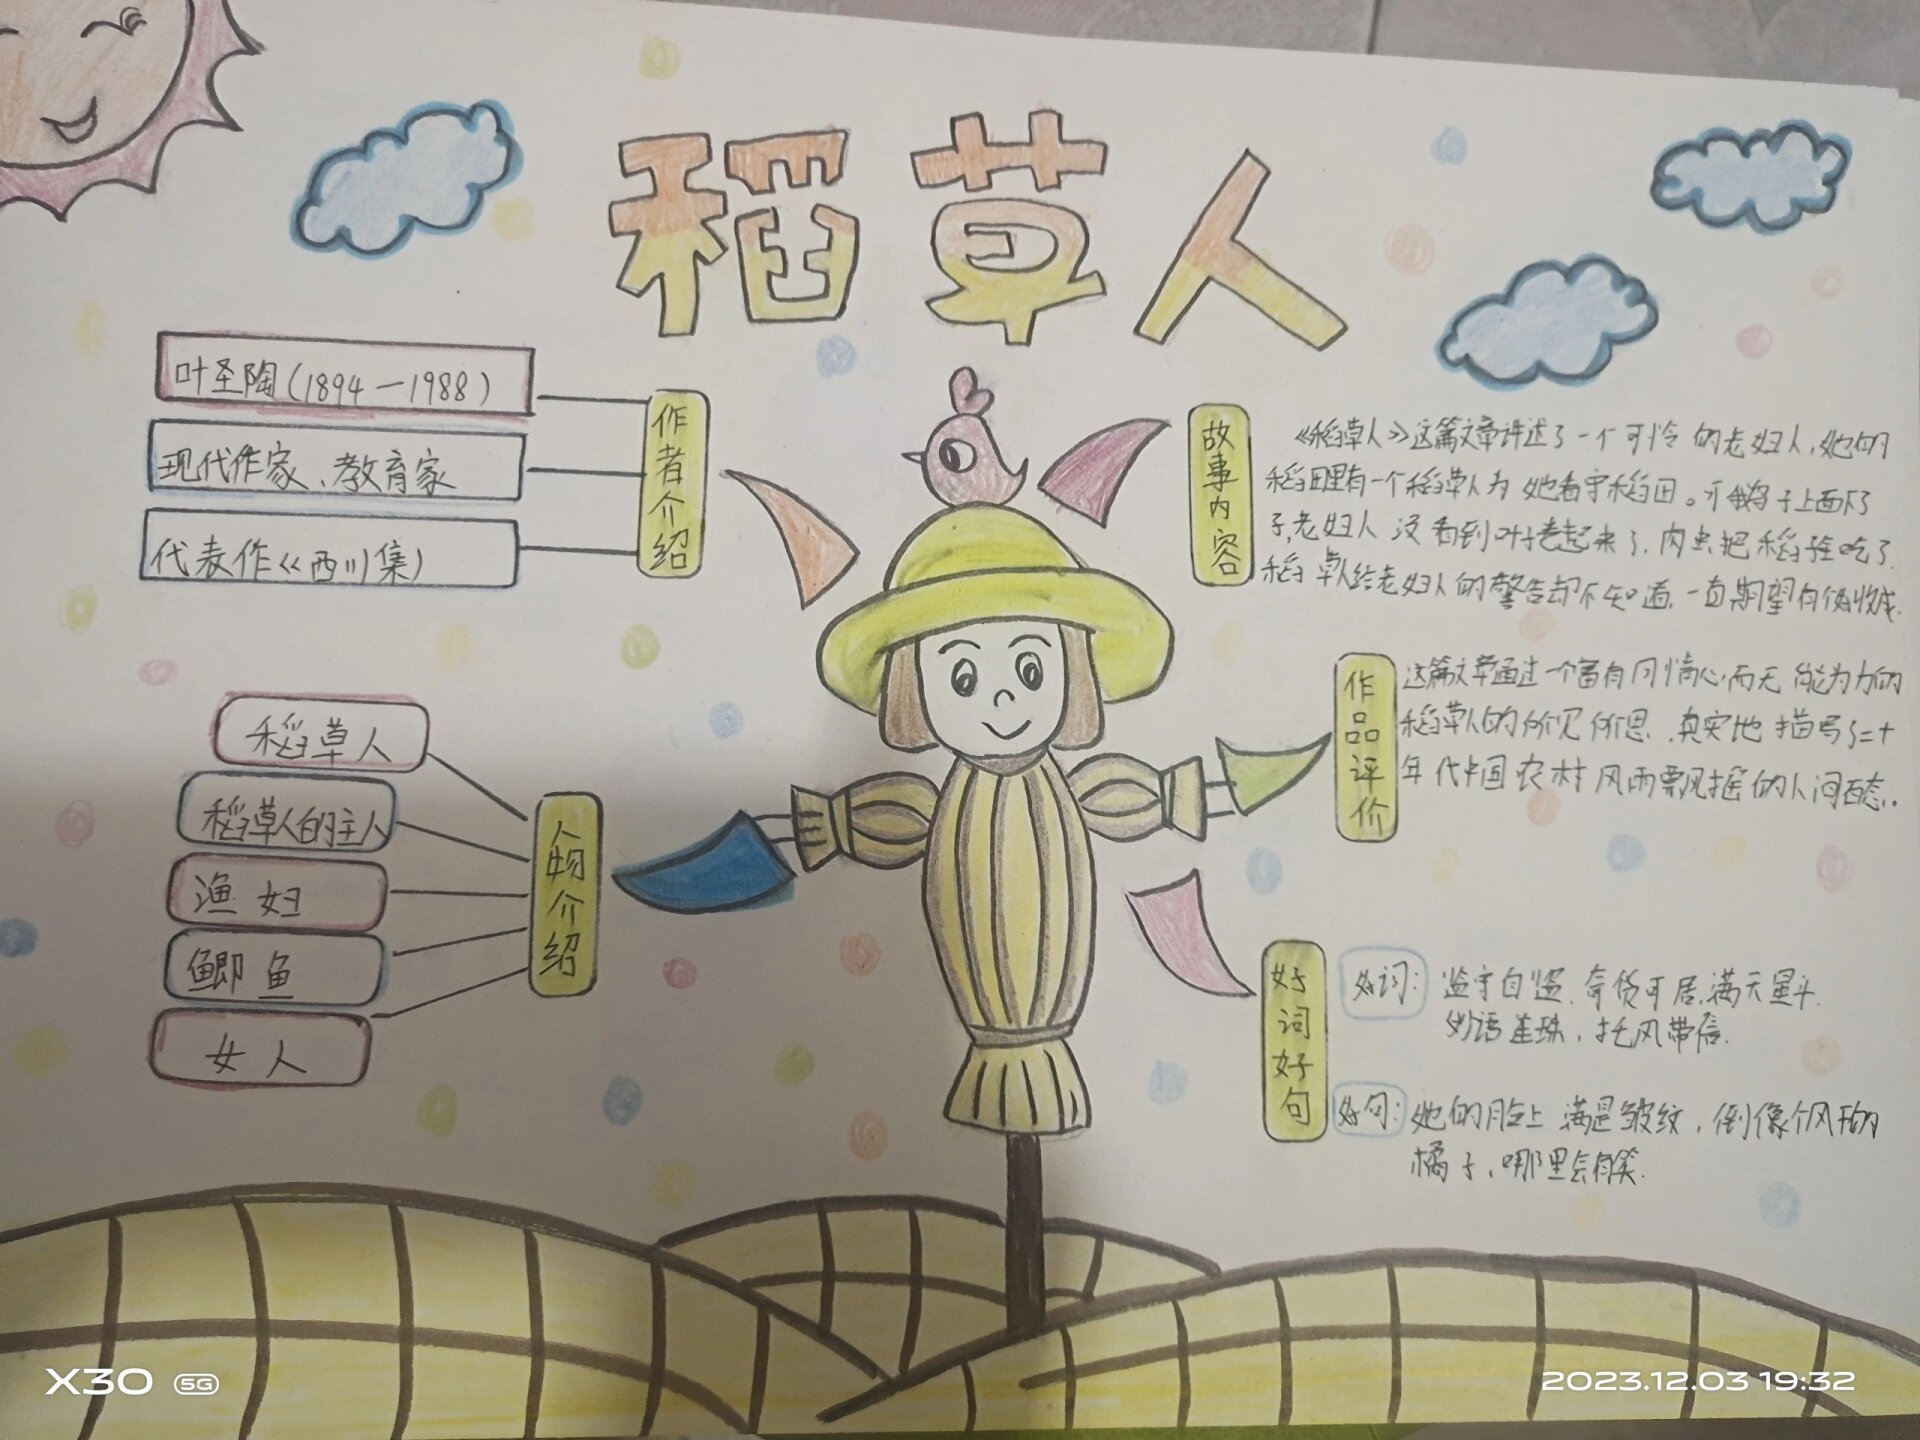 稻草人
作者介绍
叶圣陶(1894—1988)
现代作家、教育家
代表作《西川集》
人物介绍
稻草人
稻草人的主人
渔妇
鲫鱼
女人
故事内容
《稻草人》这篇文章讲述了一个可怜的老妇人,她的
稻田里有一个稻草人为她看守稻田。
老妇人没看到叶子卷起来了,肉虫把稻子全吃了.
稻草人给老妇人的警告却不知道,一直期望有個收成.
作品评价
这篇文章通过一个富有同情心,而无能为力的
稻草人的所见所思,真实地描写了二十
年代中国农村风雨飘摇的人间百态.
好词好句
好词: 监守自盗.奇货可居.满天星斗.
妙语连珠,托风带信.
好句: 她的脸上满是皱纹,倒像个风干的
橘子,哪里会有笑.
X30 5G
2023.12.03 19:32